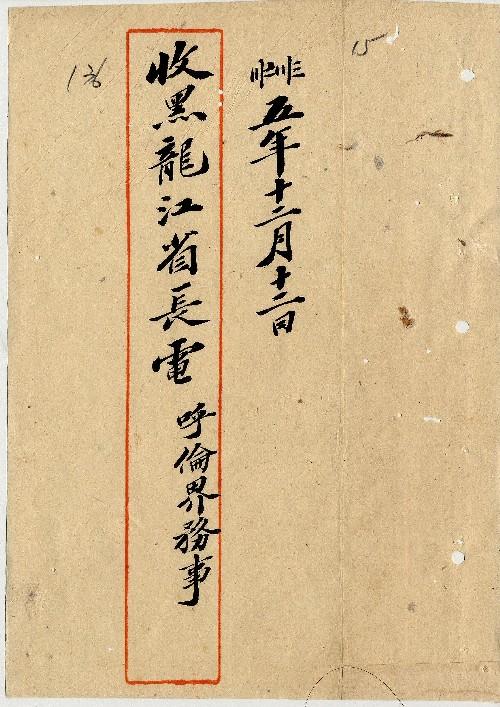 五年十二月十二日
收黑龍江省長電 呼倫界務事